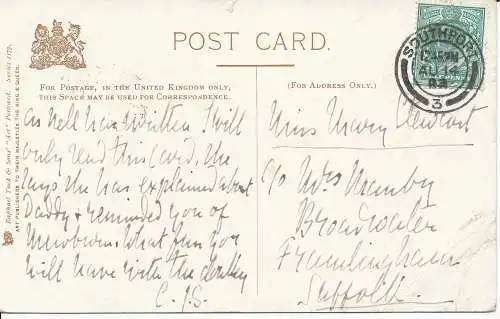 POST CARD.
FOR POSTAGE, IN THE UNITED KINGDOM ONLY,
THIS SPACE MAY BE USED FOR CORRESPONDENCE.
(FOR ADDRESS ONLY.)
Raphael Tuck & Sons' "Art" Postcard. Series 1179.
ART PUBLISHERS TO THEIR MAJESTIES THE KING & QUEEN.
SOUTHPORT
3
As Nell has written I will
only send this card, she
says she has explained about
Daddy & reminded you of
What fun you
will have with the donkey
C.J.S.
Miss Mary
c/o Mrs Manby
Broadwater
Framlingham
Suffolk